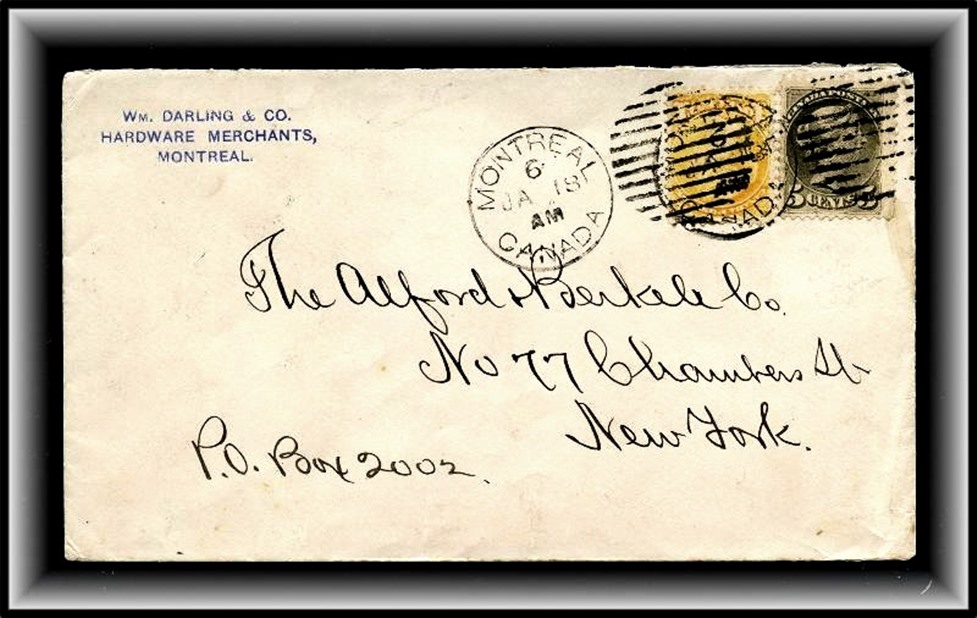 WM. DARLING & CO.
HARDWARE MERCHANTS,
MONTREAL.
MONTREAL
6
JA 18
AM
CANADA
CANADA
5 CENTS 5
The Alford & Berkele Co.
No 77 Chambers St.
New York.
P.O. Box 2002.